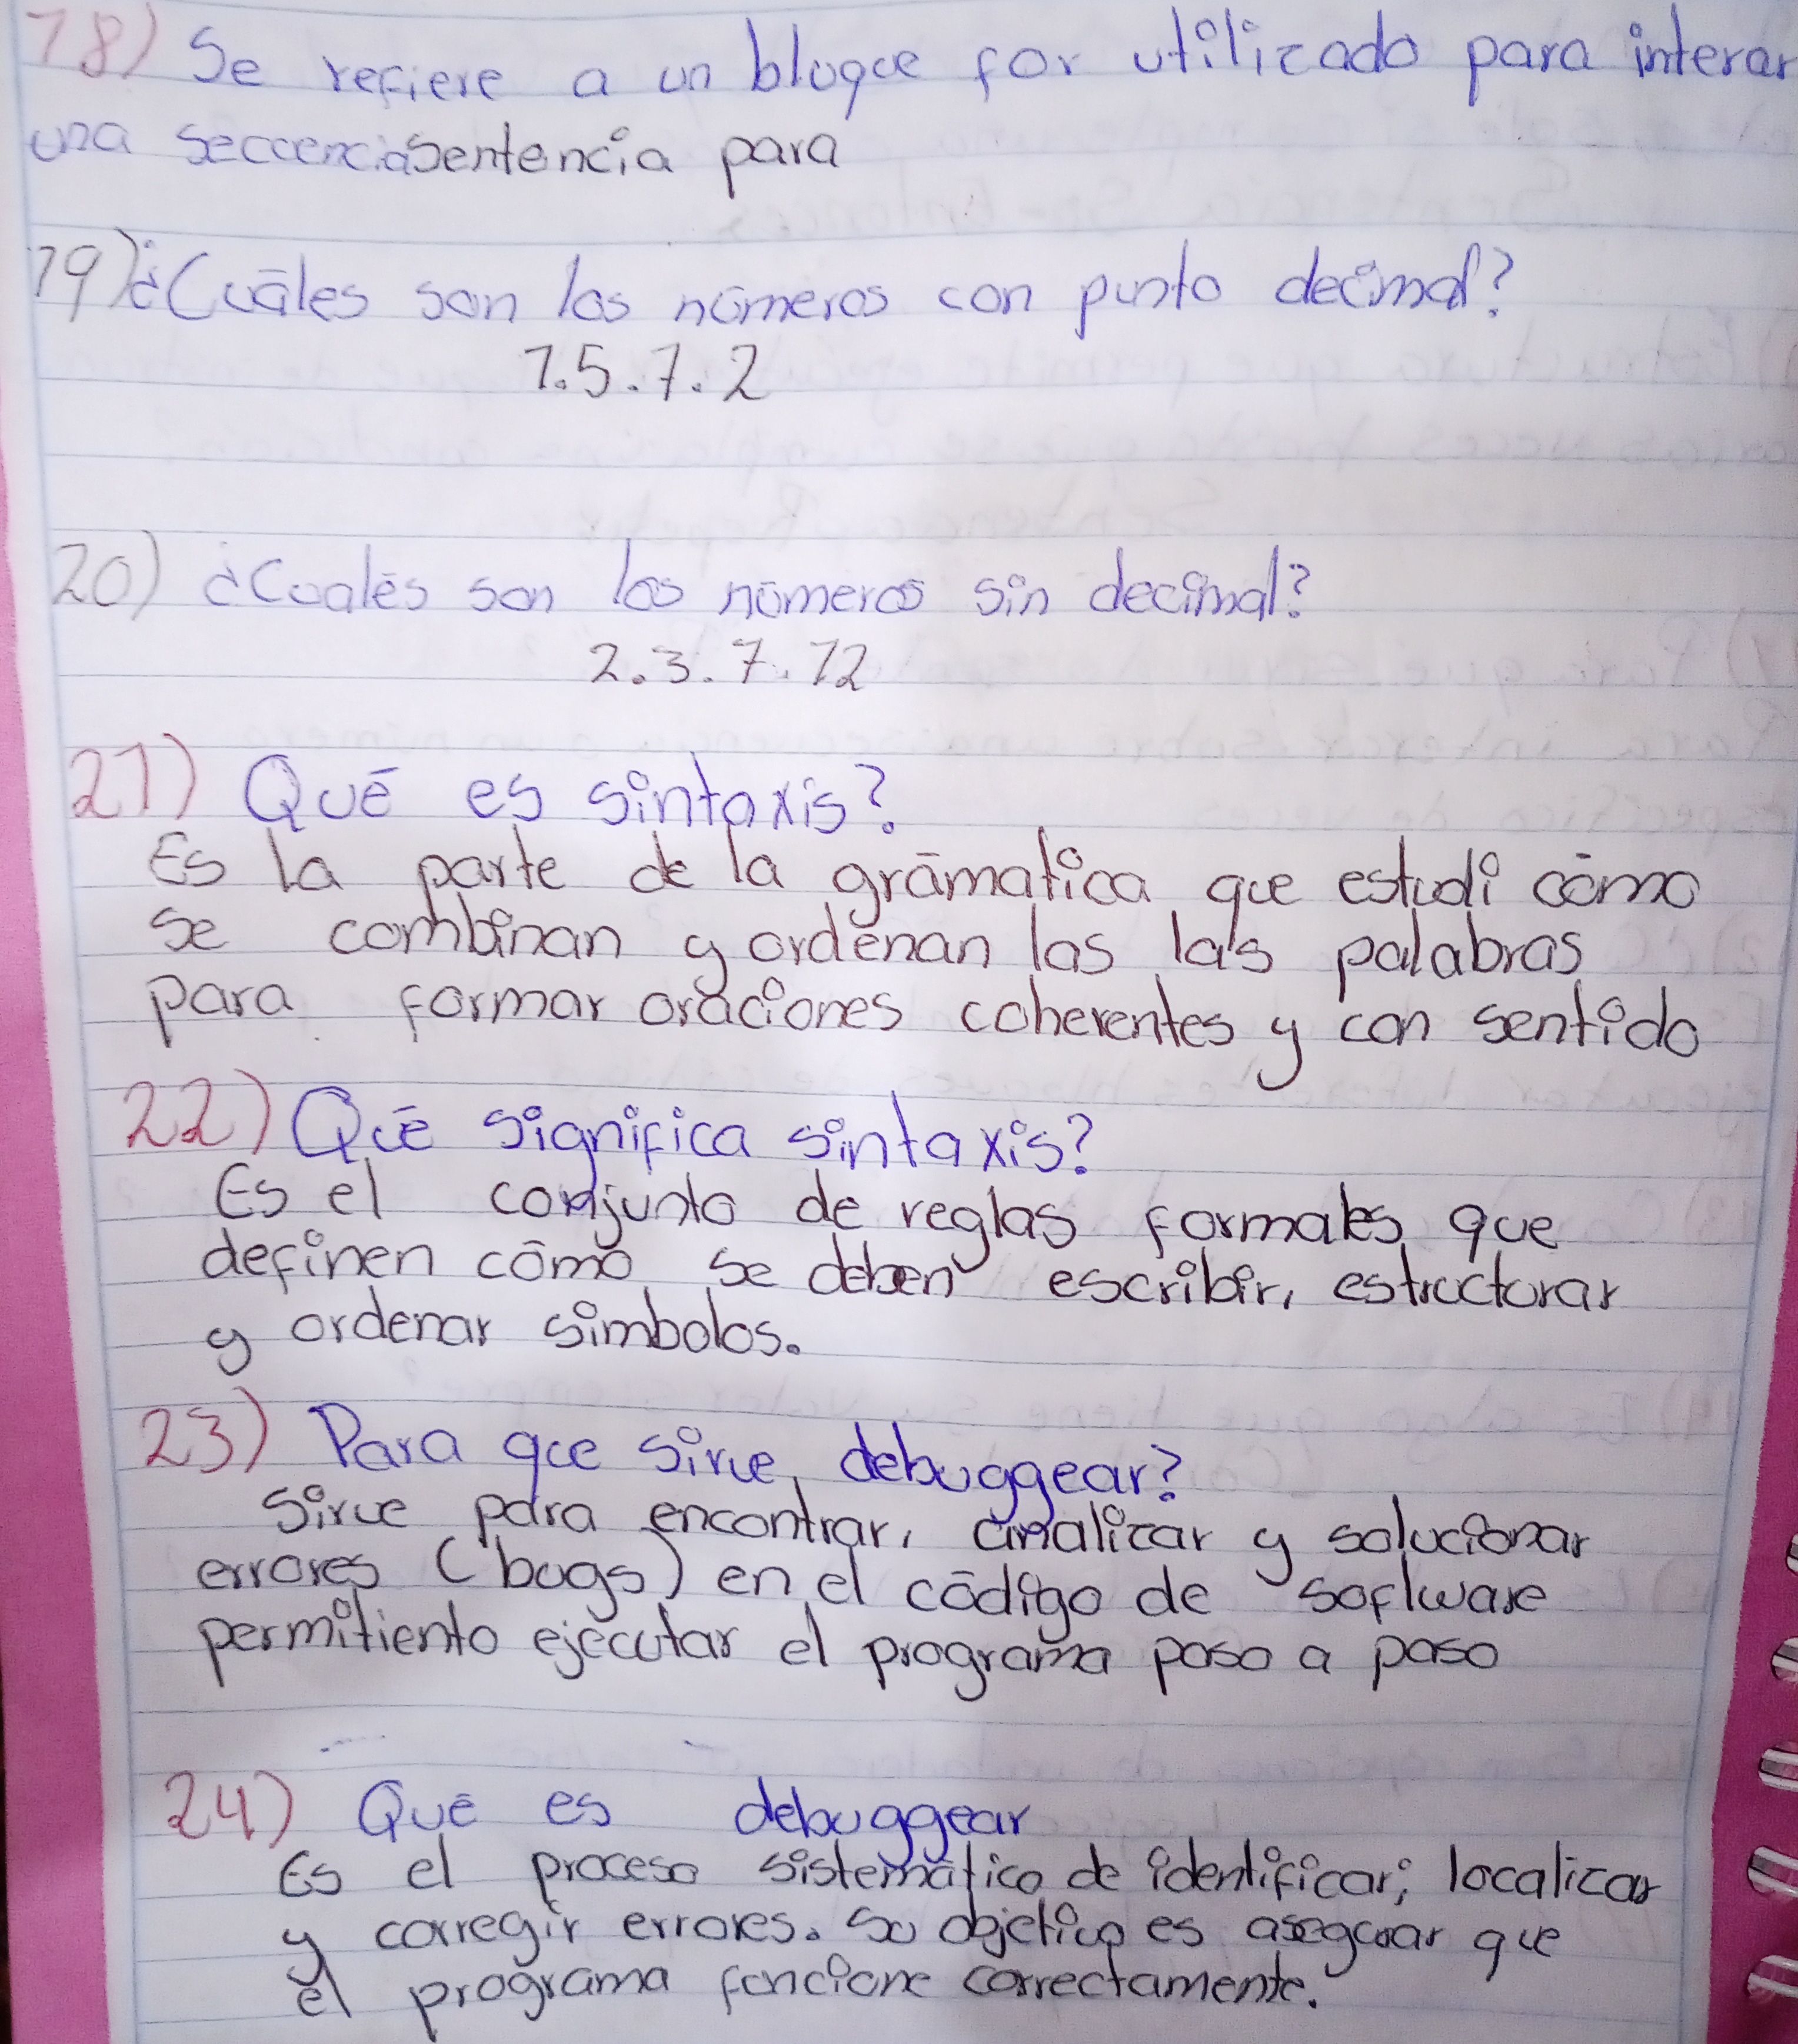 18) Se refiere a un bloque for utilizado para interar
una secuenciasentencia para
19) ¿Cuáles son los números con punto decimal?
1.5.7.2
20) ¿Cuáles son los números sin decimal?
2.3.7.12
21) Qué es sintaxis?
Es la parte de la grámatica que estudi cómo
se combinan y ordenan las las palabras
para formar oraciones coherentes y con sentido
22) Qué significa sintaxis?
Es el conjunto de reglas formales que
definen cómo se deben escribir, estructurar
y ordenar simbolos.
23) Para que sirve debuggear?
Sirve para encontrar, analizar y solucionar
errores (bugs) en el código de software
permitiento ejecutar el programa paso a paso
24) Qué es debuggear
Es el proceso sistemático de identificar; localizar
y corregir errores. Su objetivo es asegurar que
el programa funcione correctamente.